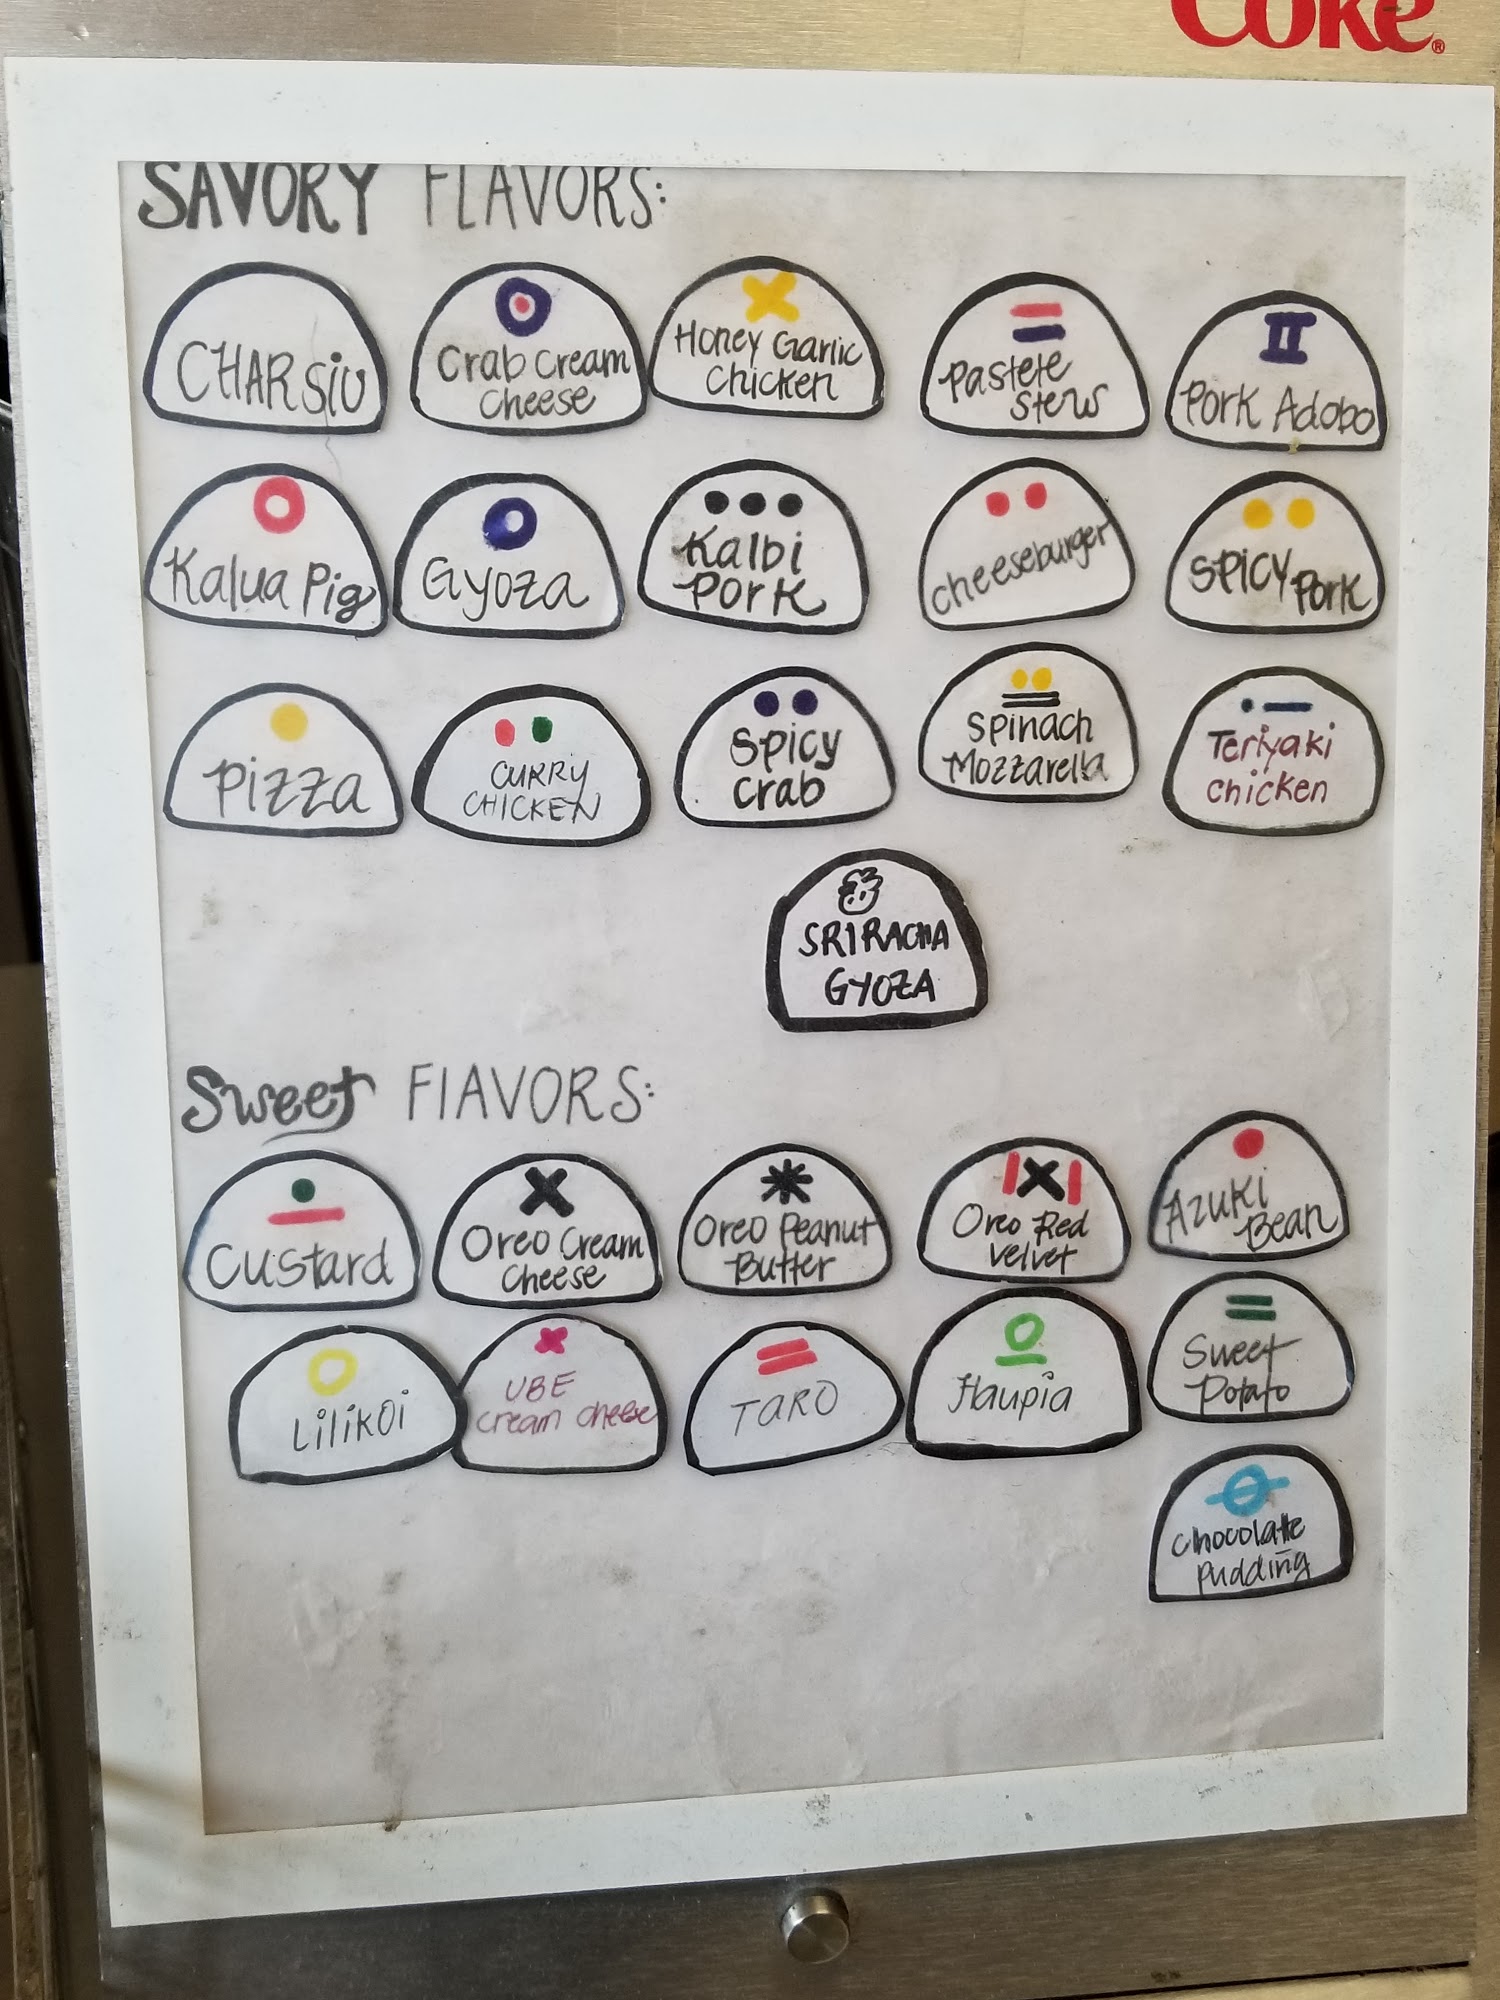 Coke®
SAVORY FLAVORS:
CHAR SIU
Crab Cream
Cheese
Honey Garlic
Chicken
Pastele
Stew
Pork Adobo
Kalua Pig
Gyoza
Kalbi
Pork
cheeseburger
Spicy Pork
Pizza
CURRY
CHICKEN
Spicy
Crab
Spinach
Mozzarella
Teriyaki
chicken
SRIRACHA
GYOZA
Sweet FlAVORS:
Custard
Oreo Cream
Cheese
Oreo Peanut
Butter
Oreo Red
Velvet
Azuki
Bean
Lilikoi
UBE
cream cheese
TARO
Haupia
Sweet
Potato
Chocolate
Pudding